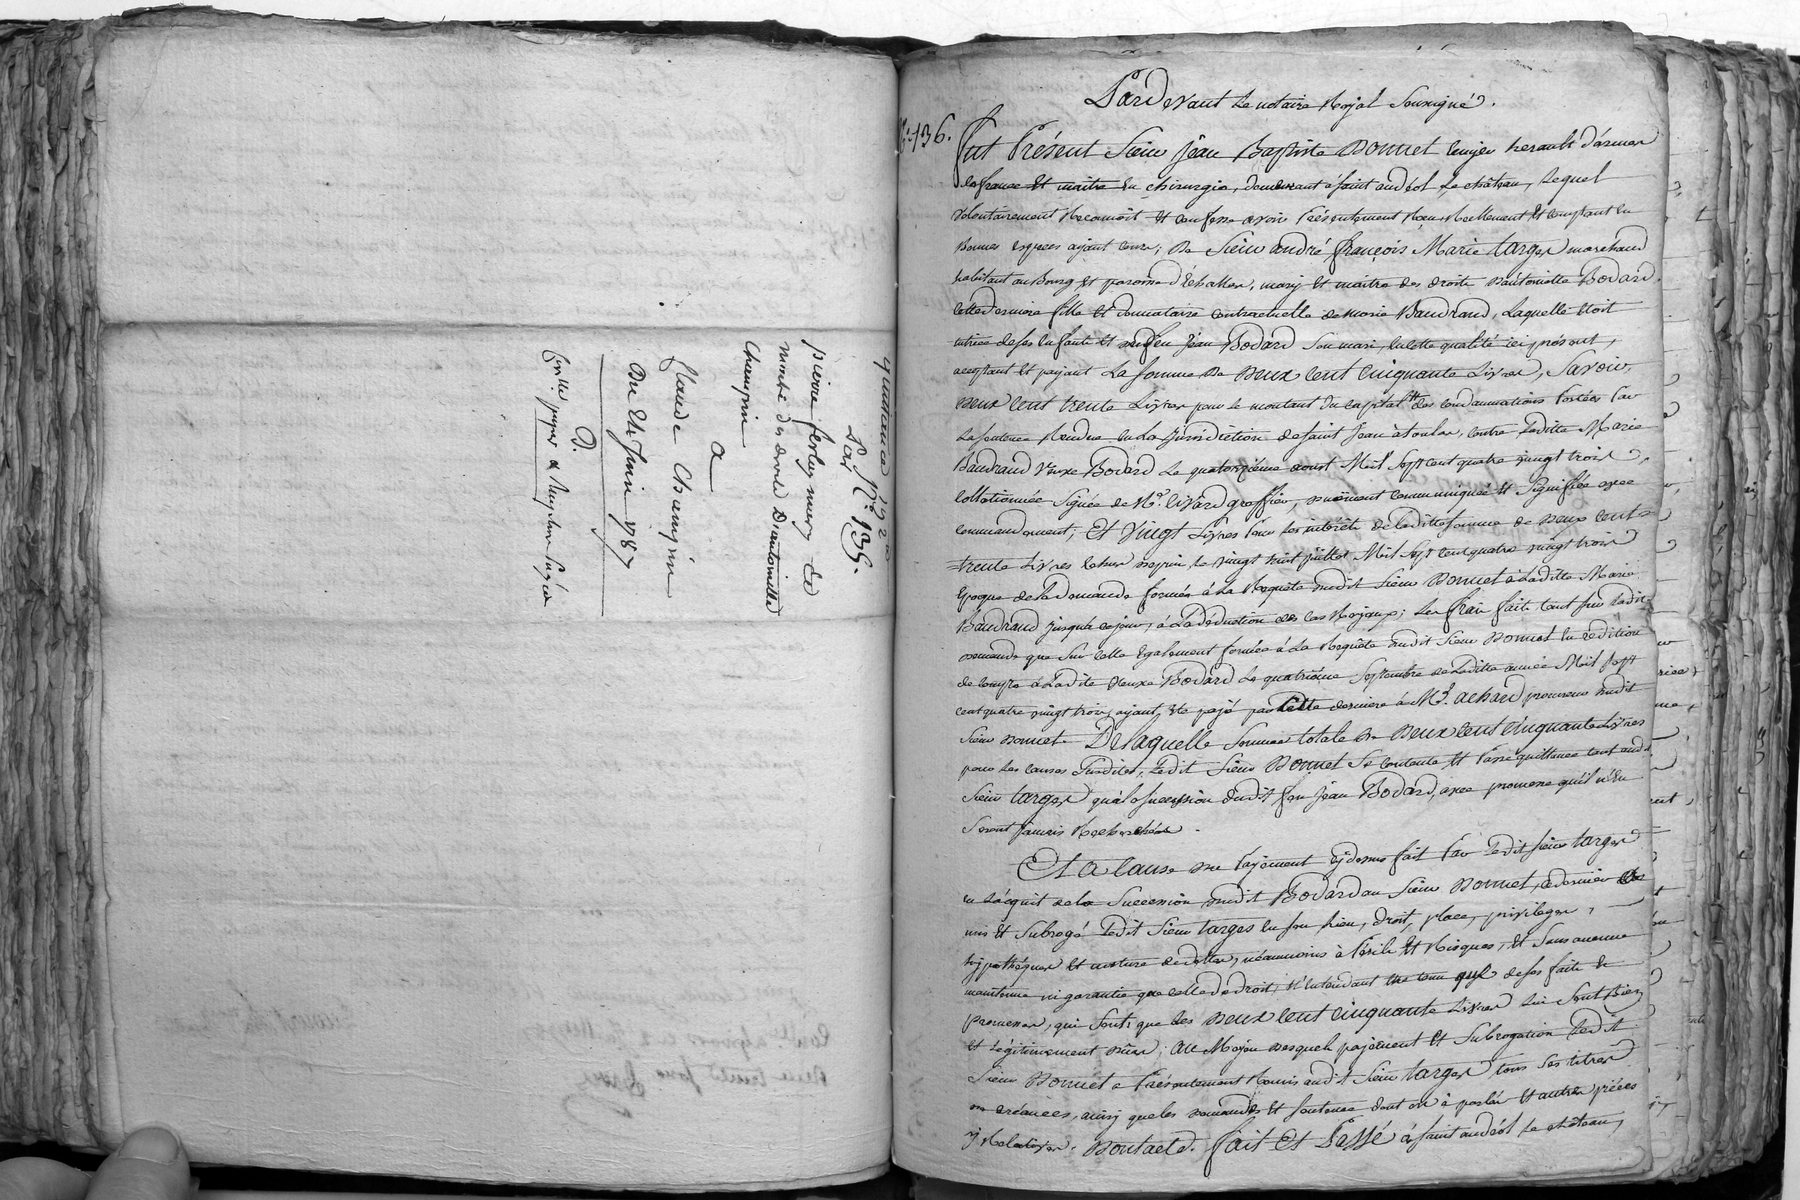 quittance 192 ₶
Par N.º 135.
pierre ferley mary et
maitre des droits D'antoinette
Champin
a
flaude Champin
Du 21 Juin 1787
D.
Pardevant Le notaire Royal Soussigné.
N.º 136.
fut Présent Sieur Jean Baptiste Bonnet ecuyer herault d'armes
de france Et maitre En chirurgie, demeurant à saint andéol Le château, Lequel
volontairement Reconnoit Et confesse avoir Présentement Reçu Reellement Et comptant En
Bonnes especes ayant cours, De Sieur andré françois Marie targes marchand
habitant au Bourg Et paroisse d'Echallas, mary Et maitre des droits D'antoinette Bodard
cette derniere fille Et donnataire contractuelle de Marie Baudrand, Laquelle Etoit
tutrice de ses Enfants Et dudit feu Jean Bodard Son mari, En cette qualité ici présent,
acceptant Et payant La somme De Deux Cent Cinquante Livres, Savoir,
Deux Cent trente Livres pour le montant du capital des condamnations Portées Par
La sentence Rendue En La Jurisdiction de saint Jean à toulas, contre Laditte Marie
Baudrand veuve Bodard Le quatorzième aoust Mil Sept cent quatre vingt trois,
collationnée Signée de M.e Civard greffier, duement communiquée Et Signifiée avec
commandement, Et Vingt Livres Pour les intérêts de Laditte somme de Deux Cent
trente Livres Echus depuis Le vingt huit juillet Mil Sept cent quatre vingt trois
Epoque de La Demande formée à La Requête dudit Sieur Bonnet à Laditte Marie
Baudrand jusqu'à ce jour, à La déduction des cas Royaux; Les frais faits tant sur Ladite
demande que Sur celle Egalement formée à La Requête dudit Sieur Bonnet En reddition
de compte à Ladite veuve Bodard Le quatrième Septembre de Laditte année Mil Sept
cent quatre vingt trois, ayant Eté payé par Cette derniere à M.e achard procureur dudit
Sieur Bonnet. De Laquelle Somme totale de Deux Cent Cinquante Livres
pour Les causes Susdites, Ledit Sieur Bonnet Se contente Et Passe quittance tant audit
Sieur targes qu'à La Succession dudit feu Jean Bodard, avec promesse qu'il n'En
Seront jamais Recherchés.
Et a Cause du Payement cydessus fait Par Ledit Sieur targes
En L'acquit de La Succession dudit Bodard au Sieur Bonnet, ce dernier
mis Et Subrogé Ledit Sieur targes En Son Lieu, Droit, place, privileges,
hypothèques Et nature de dettes, néanmoins à Périls Et Risques, Et Sans aucune
maintenue ni garantie que celle de droit, N'Entendant Etre tenu que de ses faits Et
promesses, qui sont que Les Deux Cent Cinquante Livres Lui Sont Bien
Et Légitimement Dûes; Au Moyen desquels payement Et Subrogation Ledit
Sieur Bonnet a Présentement Remis audit Sieur targes tous Ses titres
de créances, ainsi que les demandes Et Sentence dont on a parlé Et autres pièces
y Relatives. Dont acte. fait Et Passé à saint andéol Le château,